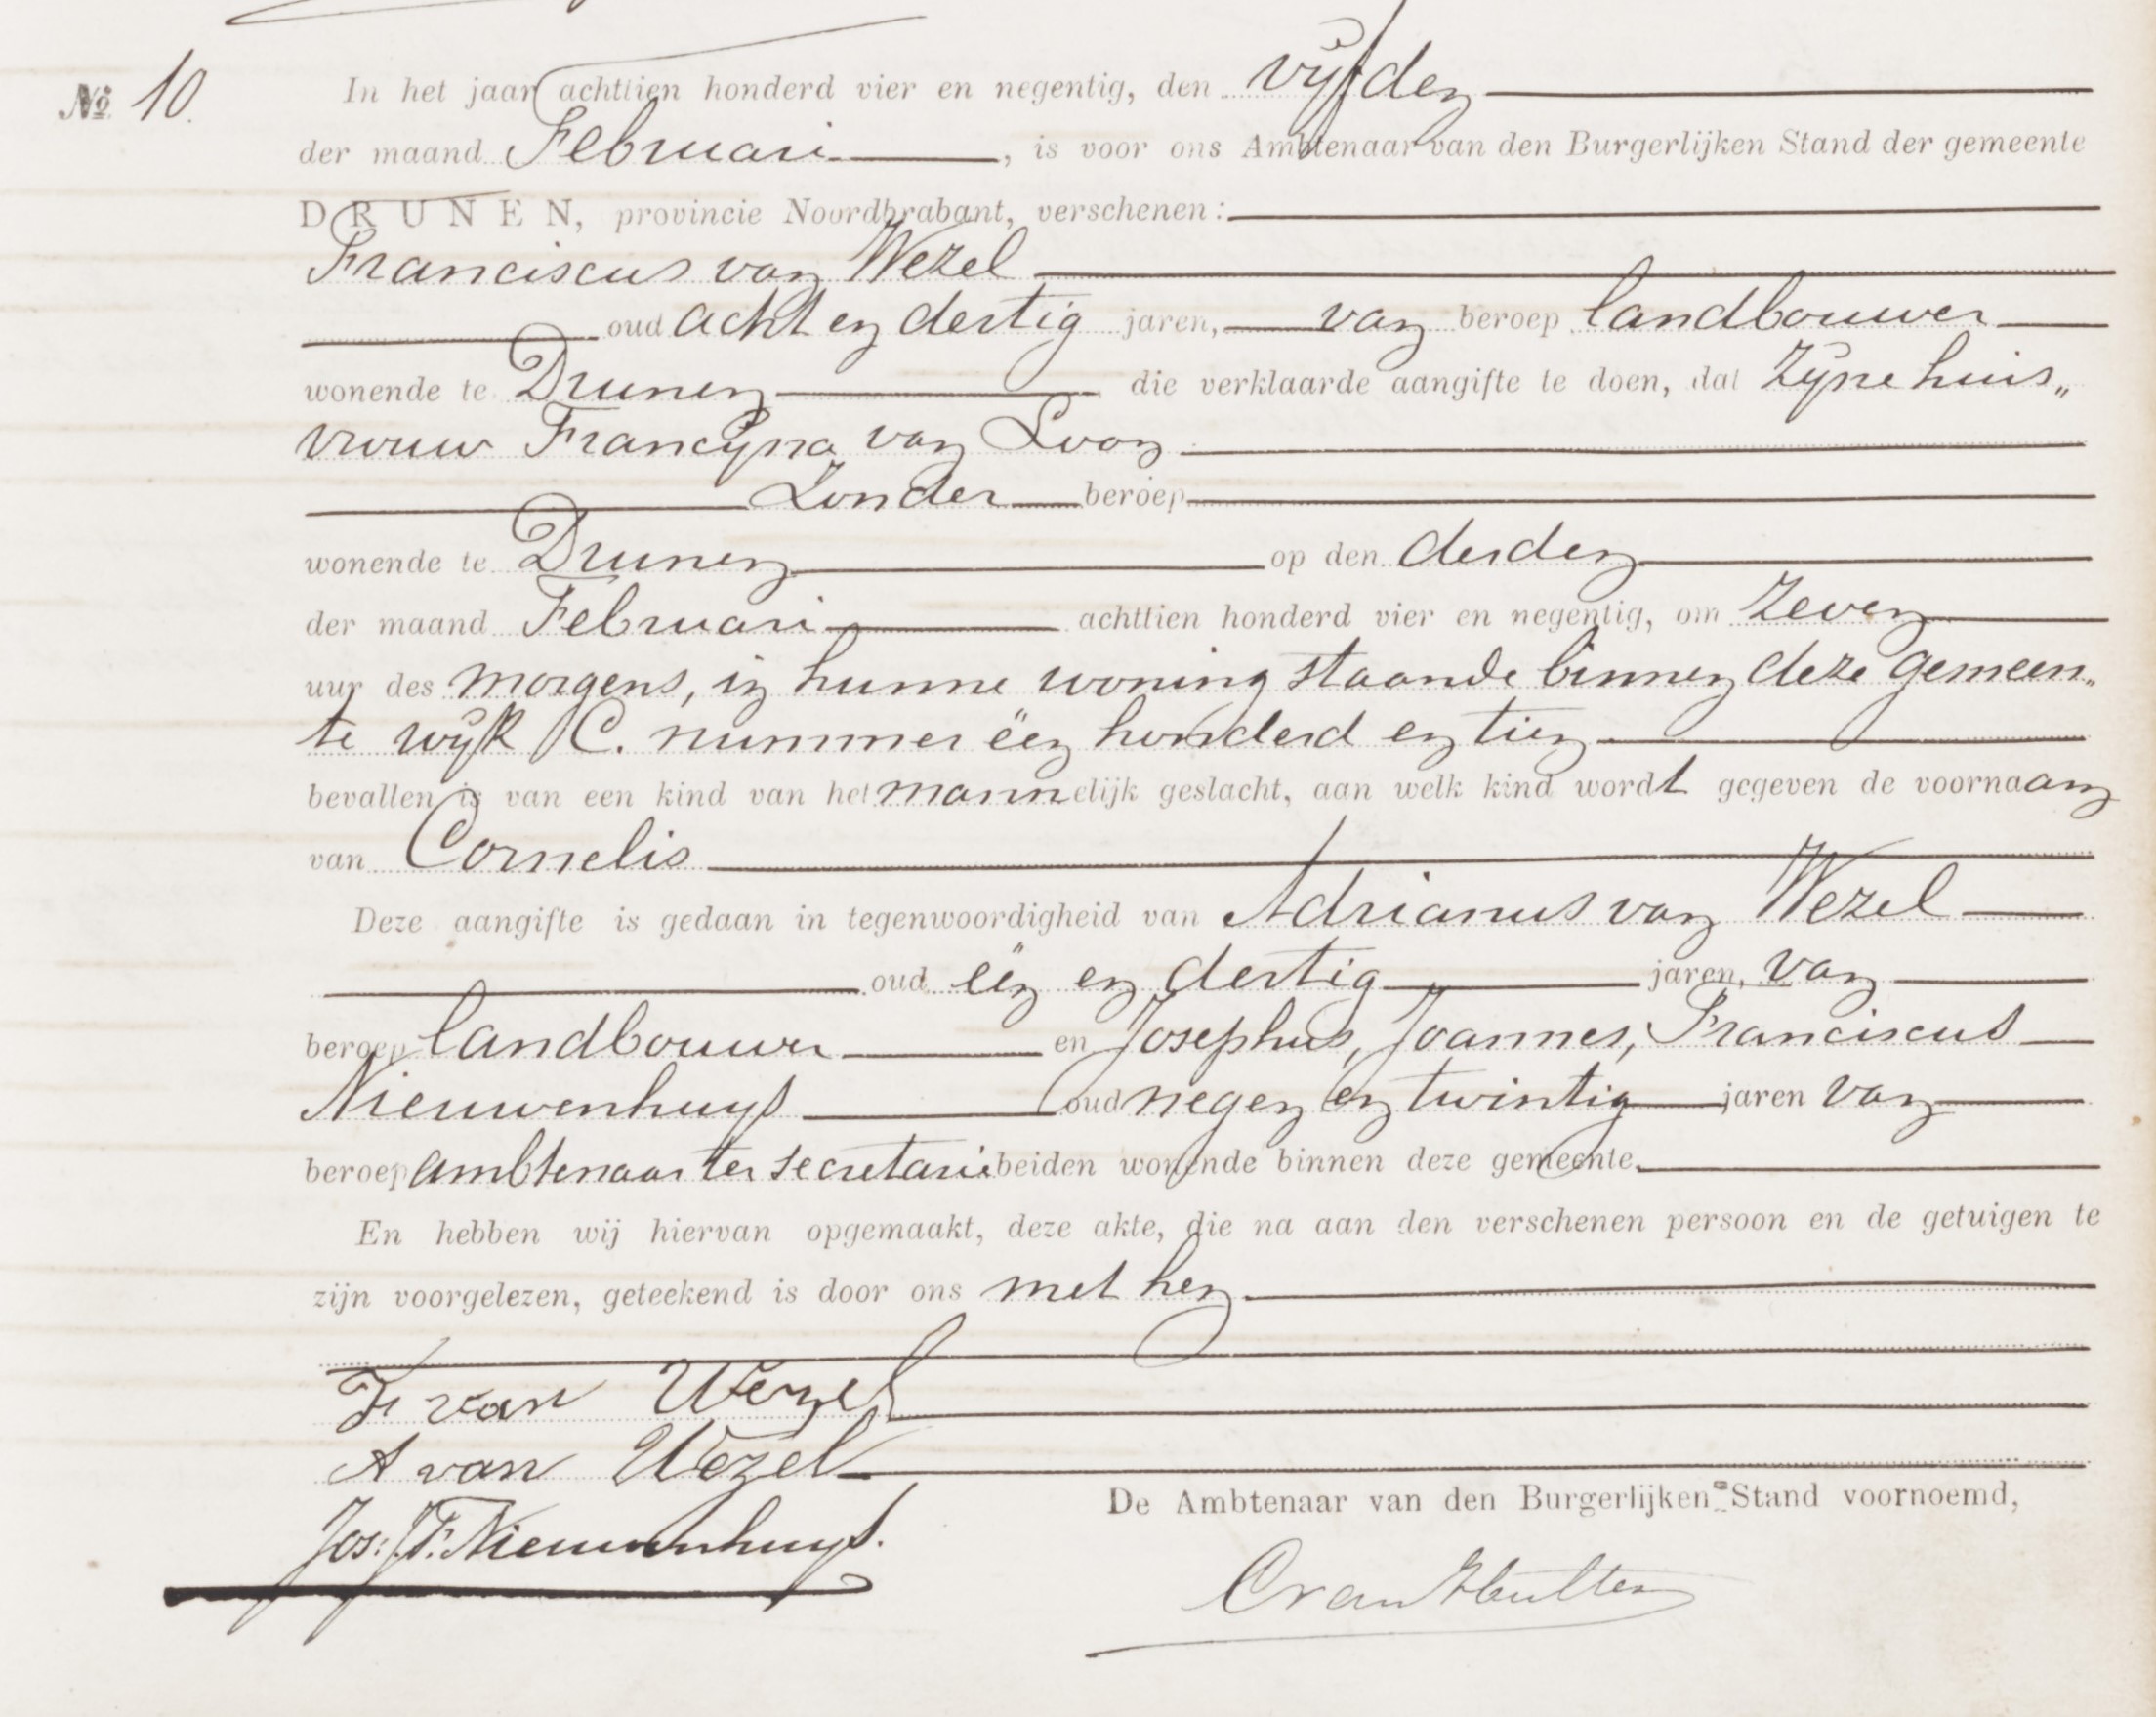 No 10. In het jaar achttien honderd vier en negentig, den vijfden
der maand Februari, is voor ons Ambtenaar van den Burgerlijken Stand der gemeente
DRUNEN, provincie Noordbrabant, verschenen:
Franciscus van Wezel
oud acht en dertig jaren, van beroep landbouwer
wonende te Drunen die verklaarde aangifte te doen, dat Zijne huis„
vrouw Francijna van Loon
Zonder beroep
wonende te Drunen op den derden
der maand Februari achttien honderd vier en negentig, om Zeven
uur des morgens, in hunne woning staande binnen deze gemeen„
te wijk C. nummer één honderd en tien
bevallen is van een kind van het mannelijk geslacht, aan welk kind wordt gegeven de voornaam
van Cornelis
Deze aangifte is gedaan in tegenwoordigheid van Adrianus van Wezel
oud één en dertig jaren, van
beroep landbouwer en Josephus, Joannes, Franciscus
Nieuwenhuys oud negen en twintig jaren van
beroep ambtenaar ter secretarie beiden wonende binnen deze gemeente.
En hebben wij hiervan opgemaakt, deze akte, die na aan den verschenen persoon en de getuigen te
zijn voorgelezen, geteekend is door ons met hen.
F van Wezel
A van Wezel
Jos: J. F. Nieuwenhuys.
De Ambtenaar van den Burgerlijken Stand voornoemd,